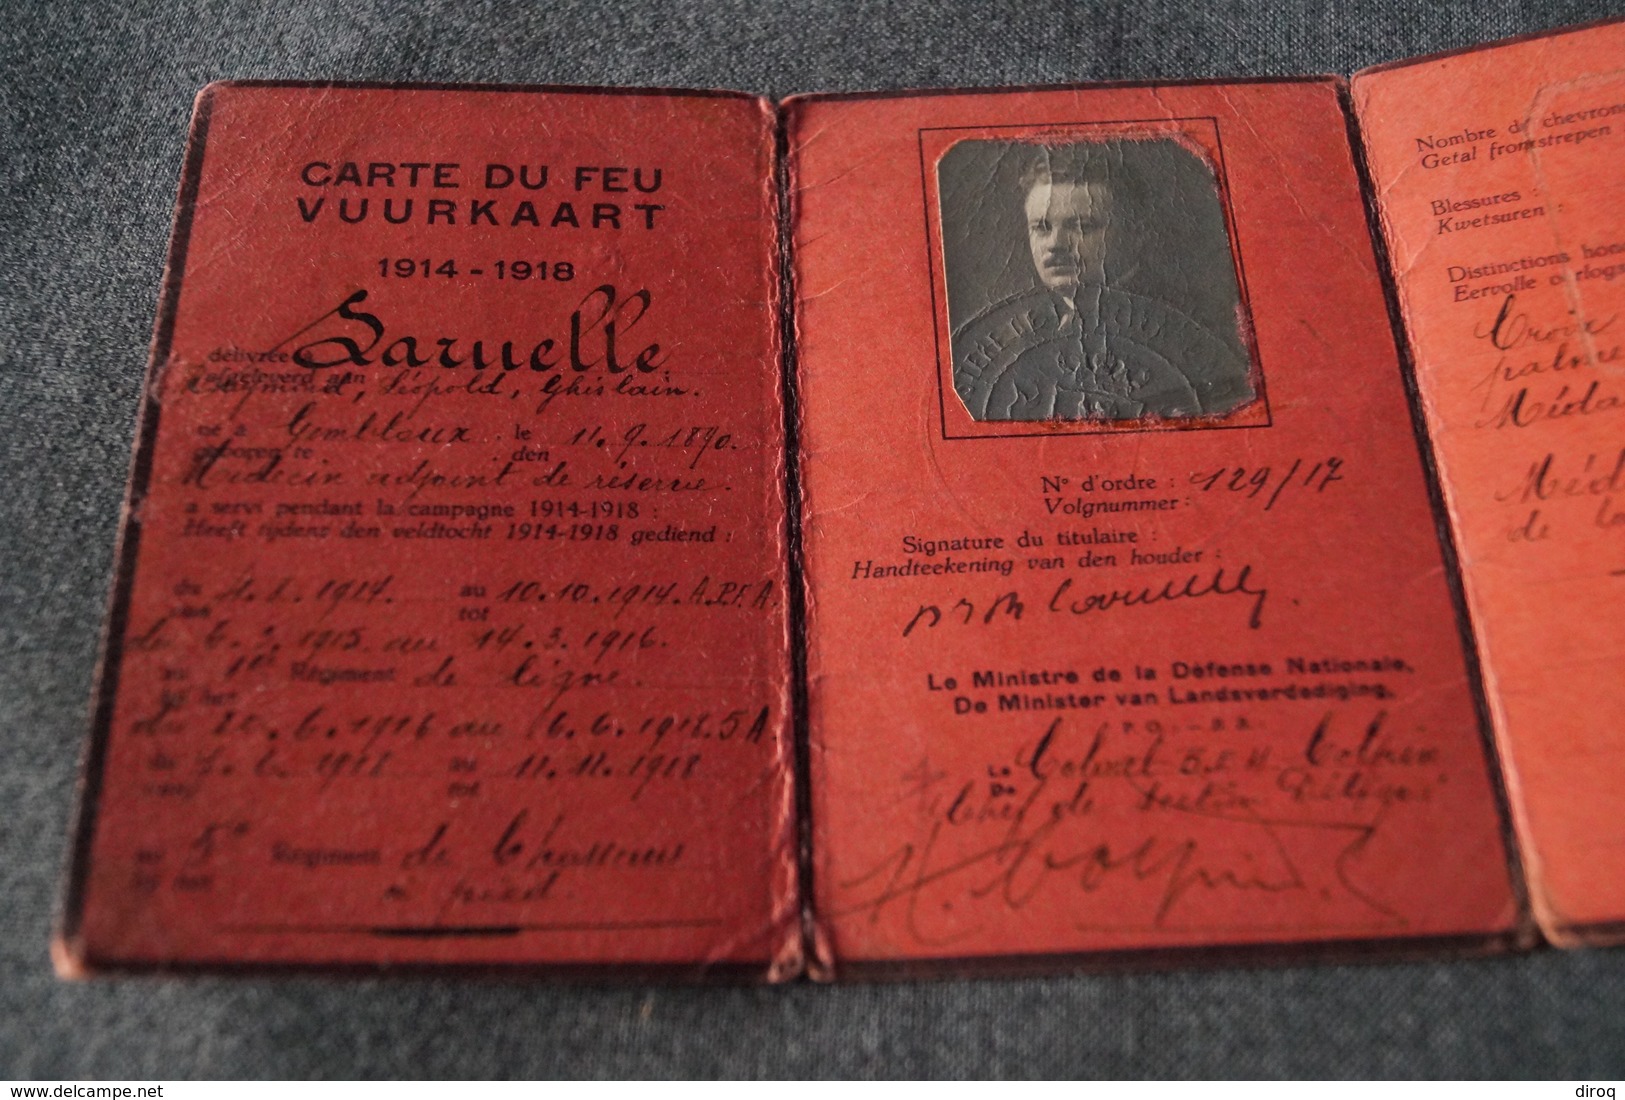 CARTE DU FEU
VUURKAART
1914 - 1918
délivrée à
Léopold, Ghislain.
né à Gembloux. le 11.9.1890.
geboren te den
Médecin adjoint de réserve.
a servi pendant la campagne 1914-1918 :
Heeft tijdens den veldtocht 1914-1918 gediend :
du 1914. au 10.10.1914.
van tot
1915 au 14.3.1916.
au Régiment de ligne.
bij het
1916 au 6.6.1918.
du 1918 au 11.11.1918
van tot
au 5me Régiment de Chasseurs
bij het à pied.
N° d'ordre : 129/17
Volgnummer :
Signature du titulaire :
Handteekening van den houder :
Le Ministre de la Défense Nationale,
De Minister van Landsverdediging,
Le Colonel
De
Chef de Section Délégué
Nombre de chevrons
Getal frontstrepen
Blessures :
Kwetsuren :
Distinctions hono
Eervolle oorlogs
Croix
palme
Méda
Méd
de
diroq